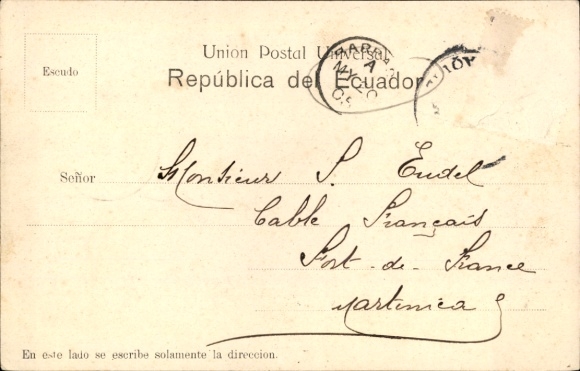 Union Postal Universal
República del Ecuador
Escudo
BARBA
A
MY 20
Señor Monsieur S. Eudel
Cable Français
Fort-de-France
Martinica
En este lado se escribe solamente la direccion.